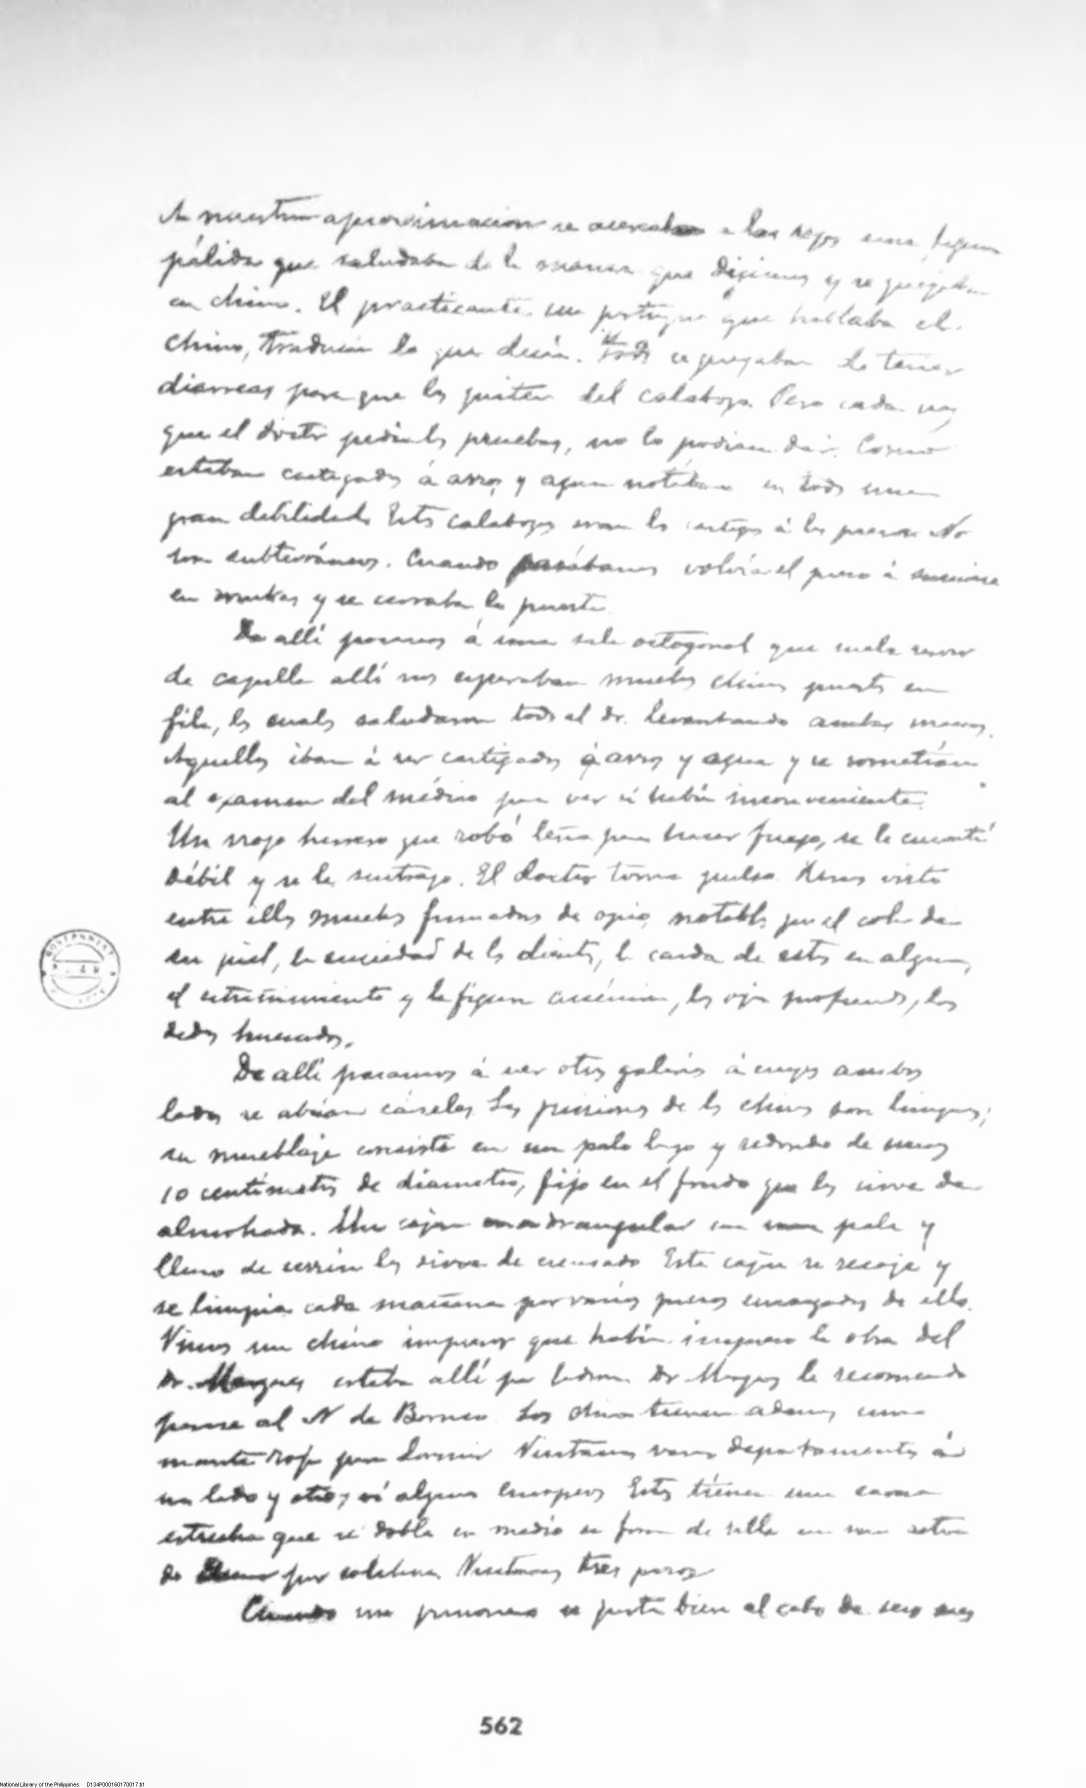 A nuestra aproximacion se acercaba a las rejas una figura
pálida que saludaba de la manera que dijimos y se quejaba
en chino. El practicante, un portugues que hablaba el
chino, traducia lo que decia. Todos se quejaban de tener
diarreas para que los quiten del calabozo. Pero cada vez
que el doctor pedia las pruebas, no lo podian dar. Como
estaban castigados á arroz y agua notábase en todos una
gran debilidad. Estos calabozos son los castigos á los presos. No
son subterráneos. Cuando pasábamos volvia el preso á sumirse
en sombras y se cerraba la puerta.
De allí pasamos á una sala octogonal que suele servir
de capilla allí nos esperaban muchos chinos puestos en
fila, los cuales saludaron todos al dr. levantando ambas manos.
Aquellos iban á ser castigados á arroz y agua y se sometian
al examen del médico para ver si habia inconveniente.
Un viejo herrero que robó leña para hacer fuego, se le encontró
débil y se le sustrajo. El doctor toma pulso. Hemos visto
entre ellos muchos fumadores de opio, notables por el color de
su piel, la suciedad de los dientes, la caida de estos en algunos,
el estreñimiento y la figura, los ojos profundos, los
dedos huesudos.
De allí pasamos á ver otras galerias á cuyos ambos
lados se abrian cárceles. Las prisiones de los chinos son limpias;
su mueblaje consiste en un palo largo y redondo de unos
10 centímetros de diámetro, fijo en el fondo que les sirve de
almohada. Un cajon cuadrangular con una pala y
lleno de serrin les sirve de escusado. Este cajon se recoje y
se limpia cada mañana por varios presos encargados de ello.
Vimos un chino impresor que habia impreso la obra del
Dr. Marques estaba allí por ladron. Dr. Marques le recomendo
pasase al N de Borneo. Los chinos tienen ademas una
manta roja para dormir. Visitamos varios departamentos á
un lado y otro, vi algunos Europeos. Estos tienen una cama
estrecha que se dobla en medio en forma de silla
de por colchon. Visitamos tres pisos
Cuando un prisionero se porta bien al cabo de seis meses
562
National Library of the Philippines